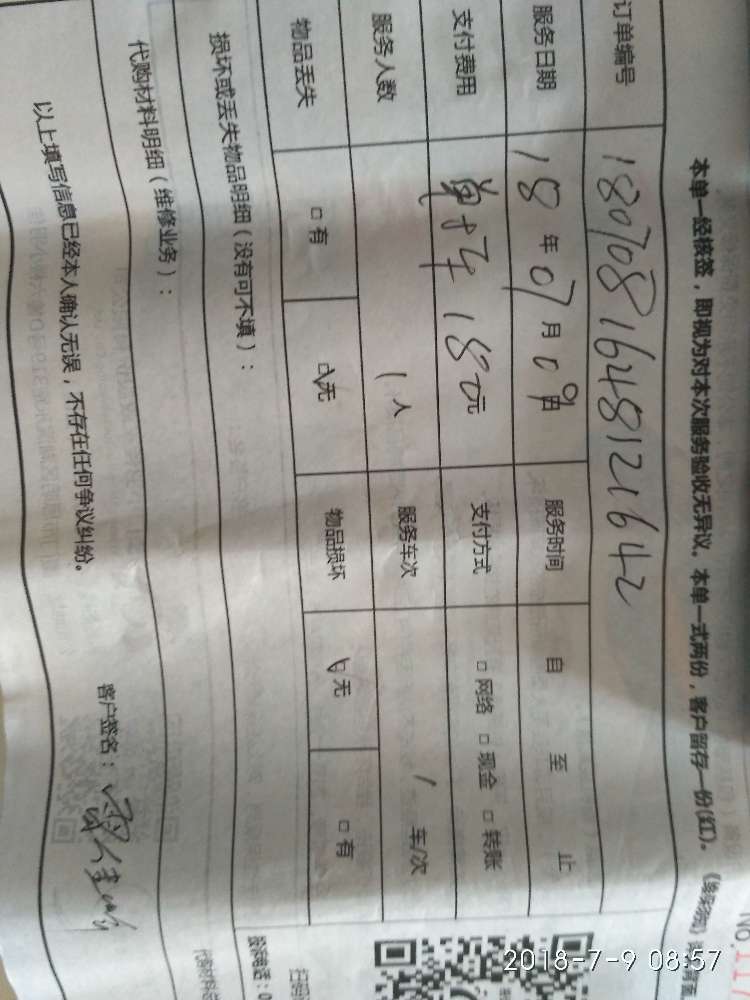 No.117
本单一经核签，即视为对本次服务验收无异议。本单一式两份，客户留存一份(红)。
订单编号 1807081648121642
服务日期 18 年 07 月 09 日 服务时间 自 至 止
支付费用 单次 180元 支付方式 □ 网络 □ 现金 □ 转账
服务人数 1 人 服务车次 1 车/次
物品丢失 □ 有 ☑ 无 物品损坏 ☑ 无 □ 有
损坏或丢失物品明细（没有可不填）：
代购材料明细（维修业务）：
以上填写信息已经本人确认无误，不存在任何争议纠纷。
客户签名：
2018-7-9 08:57